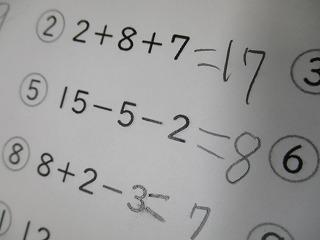 ② 2+8+7=17
③
⑤ 15-5-2=8
⑥
⑧ 8+2-3=7